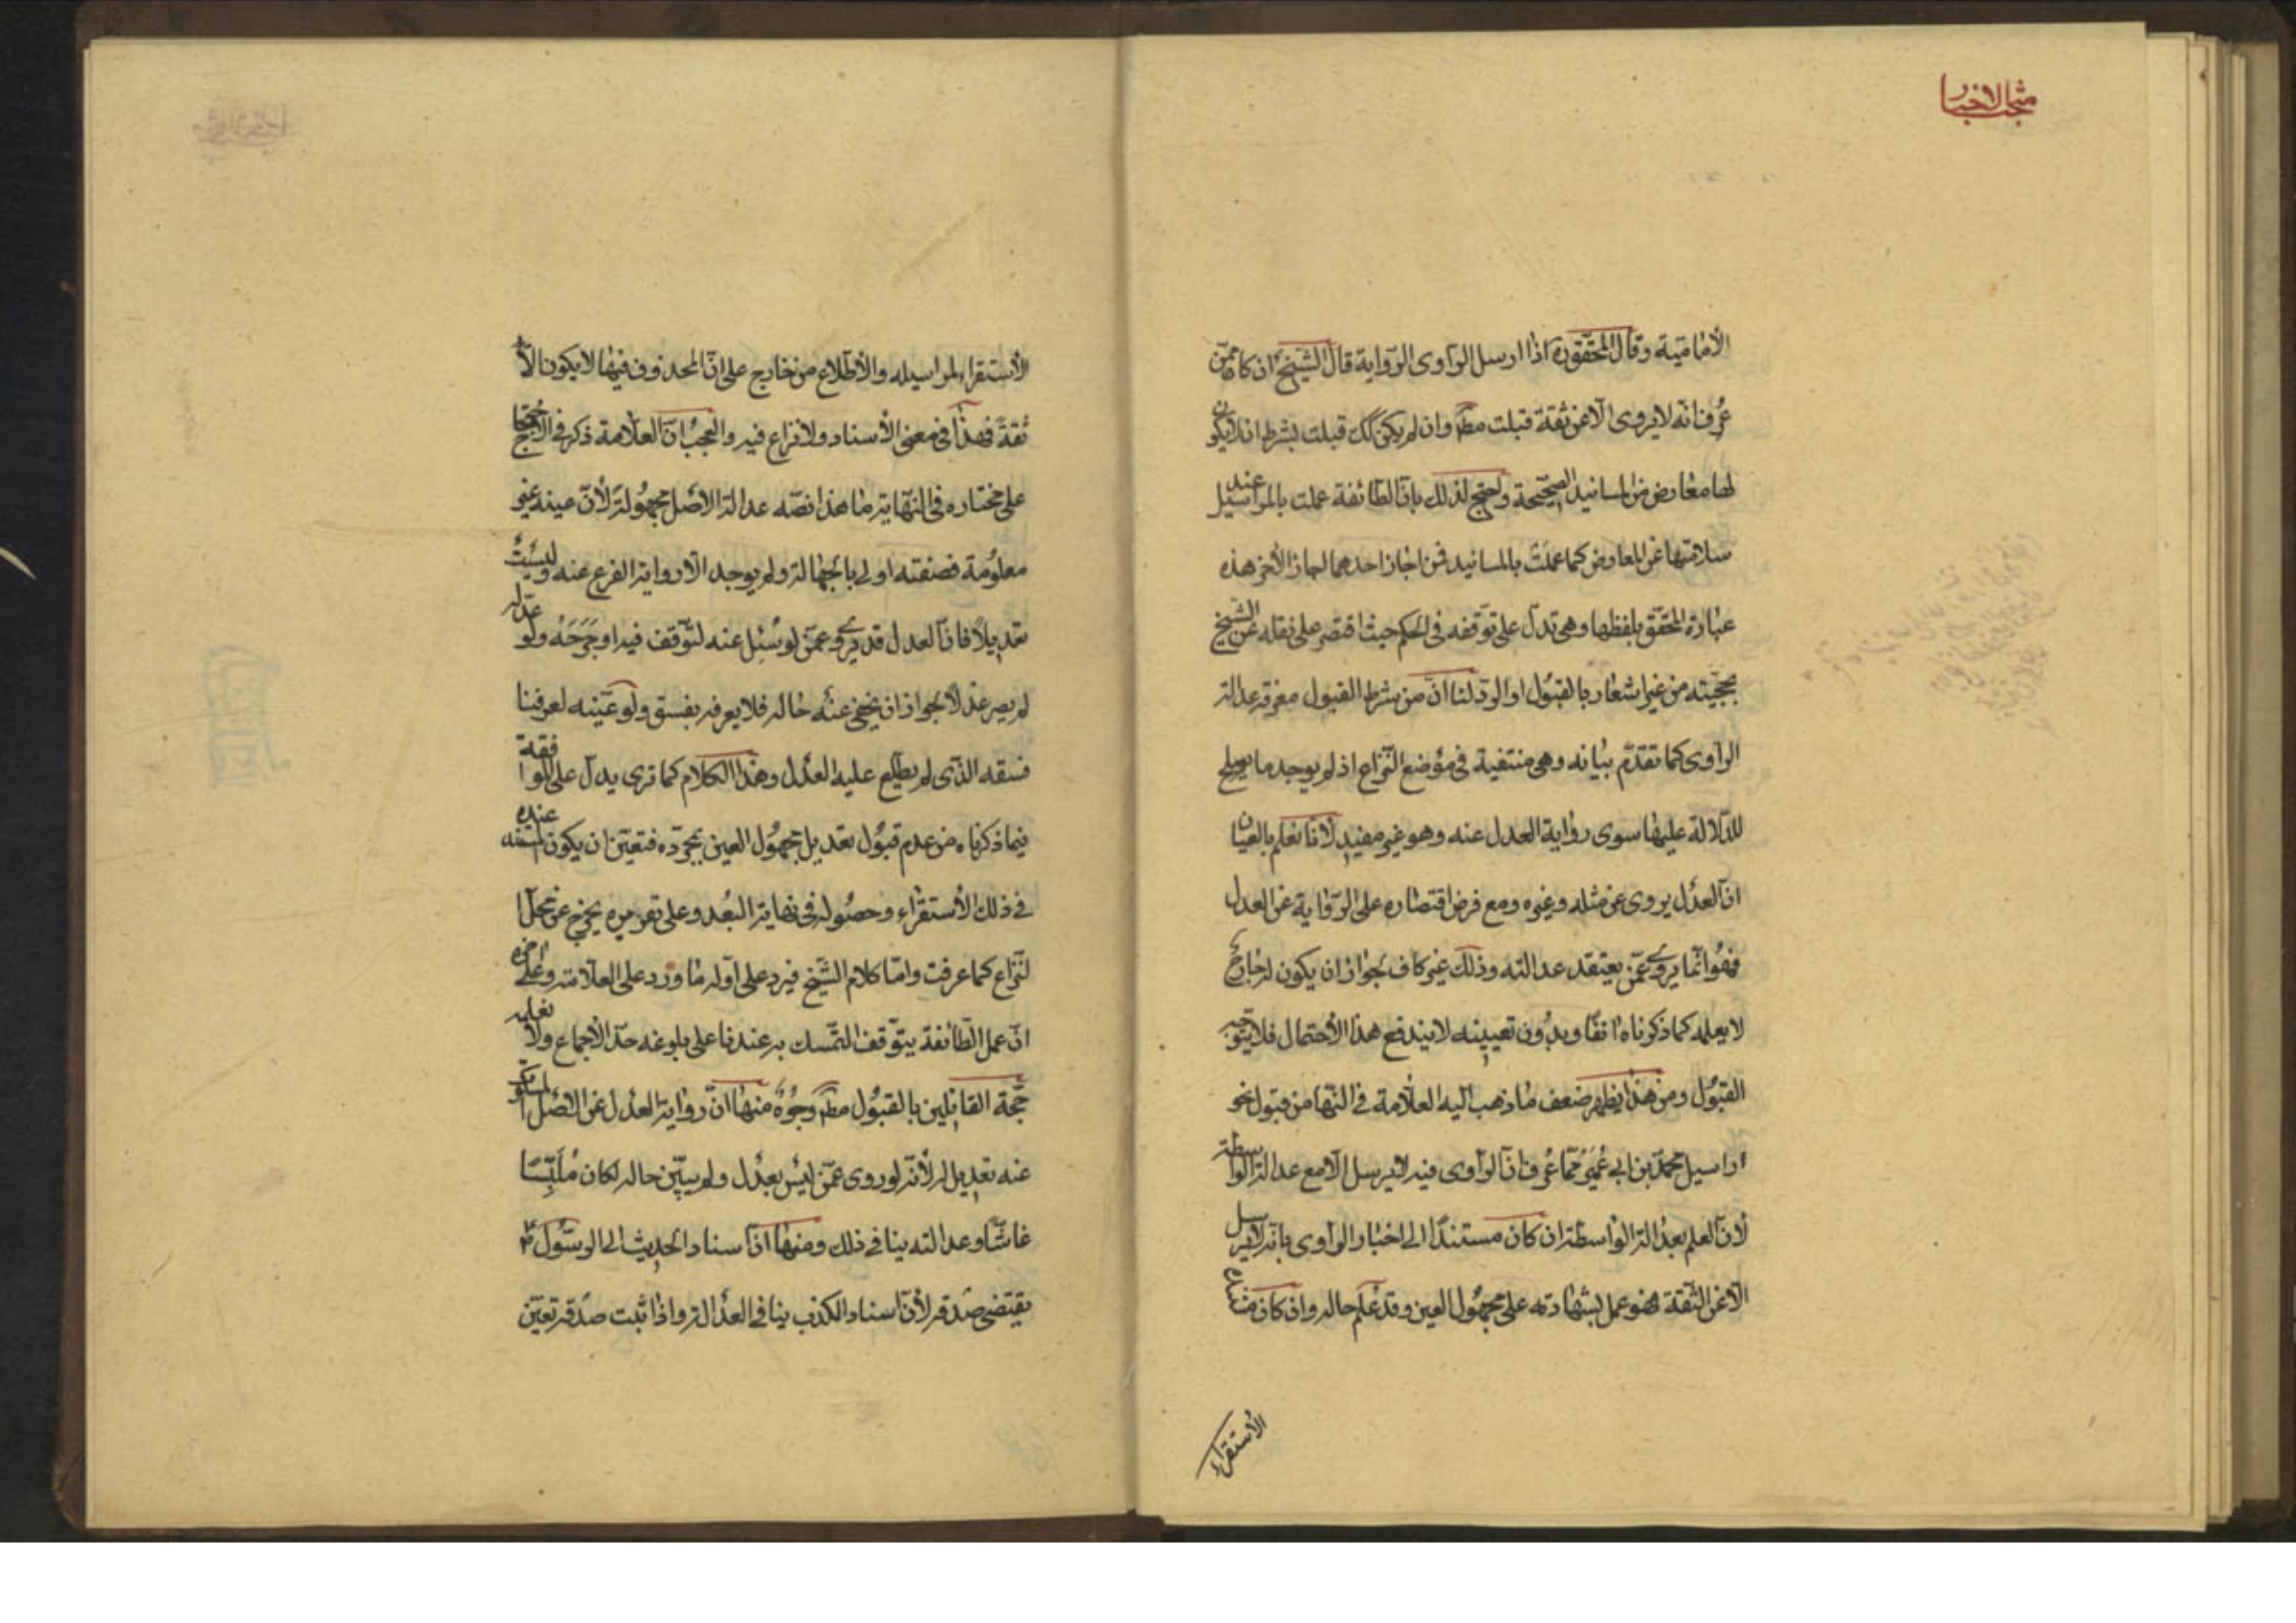 مبحث الاخبار
الأمامية وقال المحقق ره اذا ارسل الراوى الرواية قال الشيخ ان كان ممن
عُرف انه لا يروى الا عن ثقة قبلت مطم وان لم يكن كك قبلت بشرط ان لا يكون
لها معارض من المسانيد الصحيحة واحتج لذلك بان الطائفة عملت بالمراسيل عند
سلامتها عن المعارض كما عملت بالمسانيد فمن اجاز احدهما اجاز الأخر هذه
عبارة المحقق بلفظها وهى تدل على توقفه فى الحكم حيث اقتصر على نقله عن الشيخ
بحجيته من غير اشعار بالقبول او الرد لنا ان من شرط القبول معرفة عدالة
الراوى كما تقدم بيانه وهى منتفية فى موضع النزاع اذ لم يوجد ما يصلح
للدلالة عليها سوى رواية العدل عنه وهو غير مفيد لانا نعلم بالعيان
ان العدل يروى عن مثله وغيره ومع فرض اقتصاره على الرواية عن العدل
فهو انما يروى عمن يعتقد عدالته وذلك غير كاف لجواز ان يكون له جارح
لا يعلمه كما ذكرناه انفا وبدون تعيينه لا يندفع هذا الأحتمال فلا يتوجه
القبول ومن هذا يظهر ضعف ما ذهب اليه العلامة فى النها من قبول نحو
اراسيل محمد بن ابى عمير مما عرف ان الراوى فيه لا يرسل الا مع عدالة الواسطة
لأن العلم بعدالة الواسطة ان كان مستندا الى اخبار الراوى بانه لا يرسل
الا عن الثقة فهو عمل بشهادته على مجهول العين وقد علم حاله وان كان منشاء
الأستقراء
الأستقراء لمراسيله والأطلاع من خارج على ان المحذوف فيها لا يكون الا
ثقة فهذا فى معنى الأسناد ولا نزاع فيه والعجب ان العلامة ذكر فى الاحتجاج
على مختاره فى النهاية ما هذا نصه عدالة الاصل مجهولة لأن عينه غير
معلومة فصفته اولى بالجهالة ولم يوجد الا رواية الفرع عنه وليست
تعديلا فان العدل قد يروى عمن لو سئل عنه لتوقف فيه او جرحه ولو عدله
لم يصر عدلا لجواز ان يخفى عنه حاله فلا يعرفه بفسق ولو عينه لعرفنا
فسقه الذى لم يطلع عليه العدل وهذا الكلام كما ترى يدل على الموافقة
فيما ذكرناه من عدم قبول تعديل مجهول العين بمجرده فتعين ان يكون عنده
فى ذلك الأستقراء وحصوله فى نهاية البعد وعلى تقديره يخرج عن محل ا
لنزاع كما عرفت واما كلام الشيخ فيرد على اوله ما ورد على العلامة وعلى اخره
ان عمل الطائفة يتوقف التمسك به عندنا على بلوغه حد الأجماع ولا نعلمه
حجة القائلين بالقبول مطم وجوه منها ان رواية العدل عن الاصل المسكوت
عنه تعديل له لأنه لو روى عمن ليس بعدل ولم يبين حاله لكان ملبسا
غاشا وعدالته ينافى ذلك ومنها ان اسناد الحديث الى الرسول ص
يقتضى صدقه لأن اسناد الكذب ينافى العدالة واذا ثبت صدقه تعين